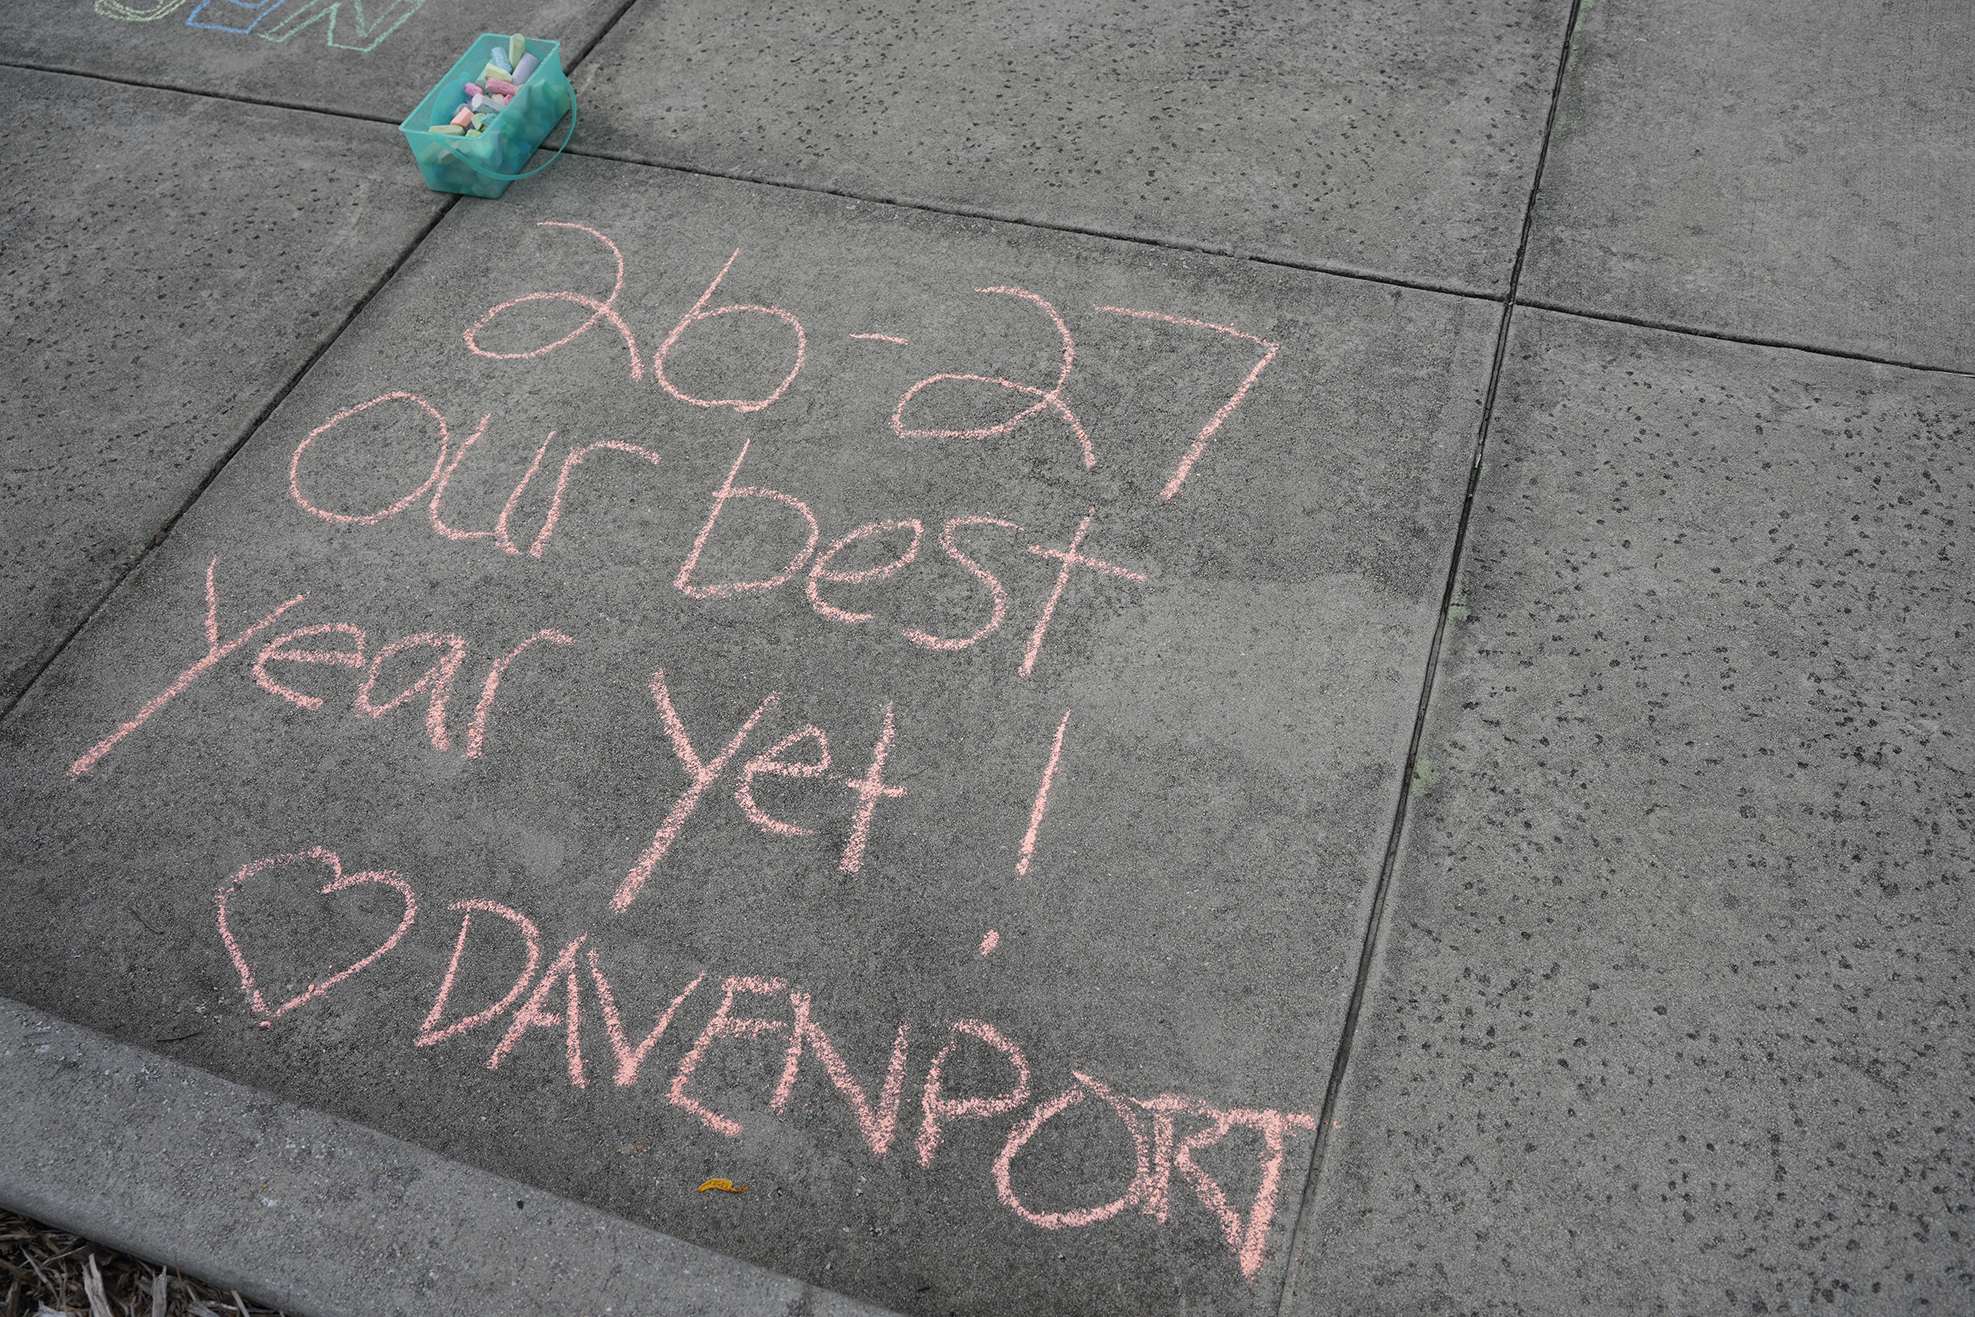 26-27
Our best
year yet!
♡ DAVENPORT